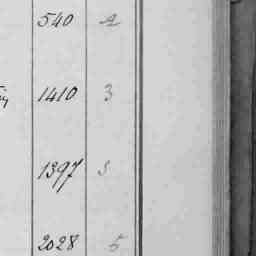 540 2
1410 3
1397 3
2028 5